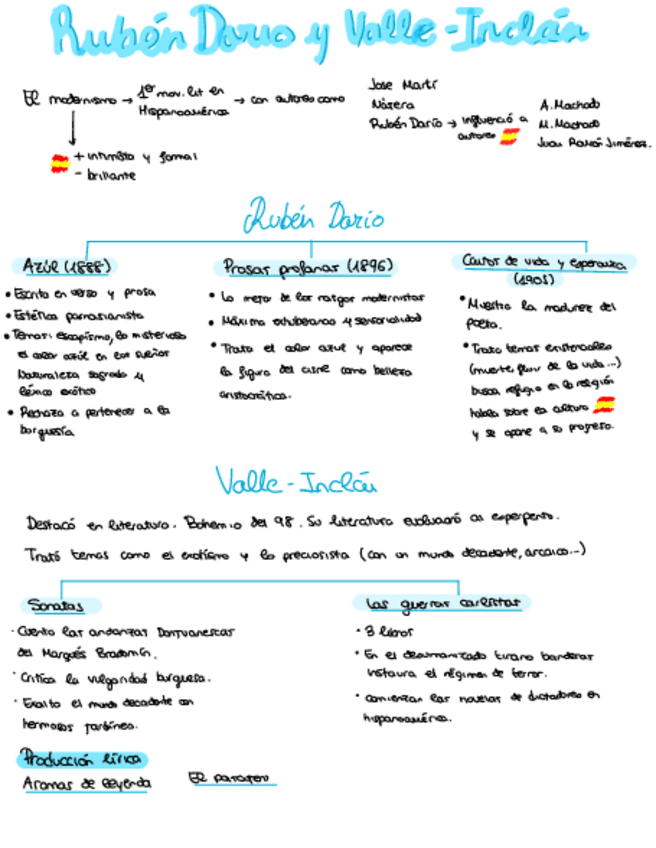 Rubén Darío y Valle-Inclán
El modernismo → 1er mov. lit en Hispanoamérica → con autores como
Jose Martí
Nájera
Rubén Darío → influenció a autores
A. Machado
M. Machado
Juan Ramón Jiménez.
+ intimista y formal
- brillante
Rubén Darío
Azúl (1888)
• Escrito en verso y prosa
• Estética parnasianista
• Temas: escapismo, lo misterioso
el color azúl en los sueños
Naturaleza sagrada y
léxico exótico
• Rechaza a pertenecer a la
burguesía
Prosas profanas (1896)
• Lo mejor de los rasgos modernistas
• Máxima exhuberancia y sensorialidad
• Trata el color azul y aparece
la figura del cisne como belleza
aristocrática.
Cantos de vida y esperanza
(1905)
• Muestra la madurez del
poeta.
• Trata temas existenciales
(muerte, fluir de la vida...)
busca refugio en la religión
habla sobre la cultura
y se opone a su progreso.
Valle-Inclán
Destacó en literatura. Bohemio del 98. Su literatura evolucionó al esperpento.
Trató temas como el erotismo y lo preciosista (con un mundo decadente, arcaico...)
Sonatas
· Cuenta las andanzas Donjuanescas
del Marqués Bradomín.
· Critica la vulgaridad burguesa.
· Exalta el mundo decadente con
hermosos jardines.
Las guerras carlistas
· 3 libros
· En el desarmanizado tirano banderas
instaura el régimen de terror.
· Comienzan las novelas de dictadores en
hispanoamérica.
Producción lírica
Aromas de leyenda
El pasajero